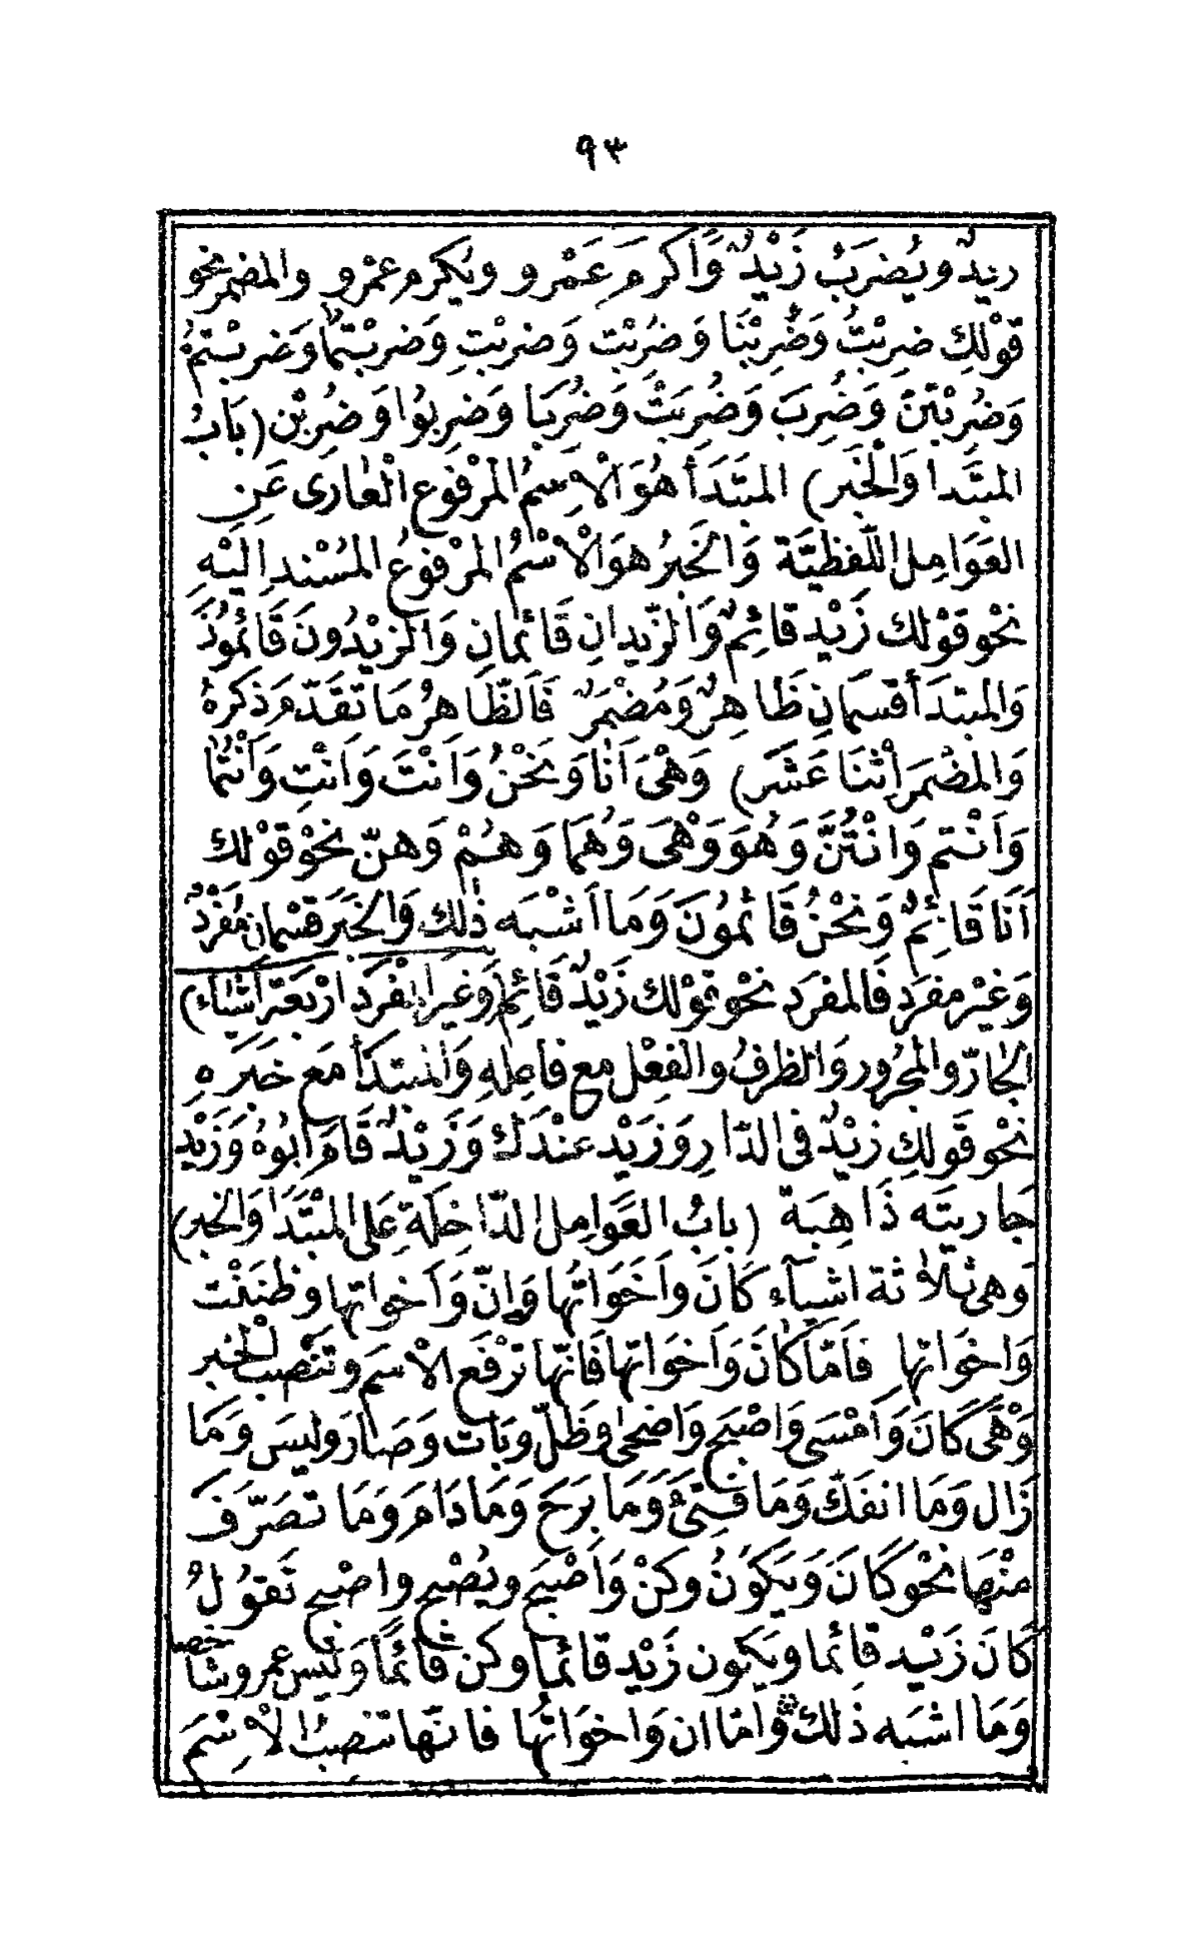 ٩٣
زيدٌ ويُضرَبُ زَيْدٌ وَأَكرمَ عَمْرو ويُكرم عمْرو والمضمر نحو
قَوْلِكَ ضربْتُ وَضُرِبْنَا وَضُرِبْتَ وَضربْتِ وَضربْتُما وَضربْتمْ
وَضُرِبْتنّ وَضُرِبَ وَضُرِبَتْ وَضُرِبَا وَضربُوا وَضُرِبْن (بَابُ
المبتَدأ وَالْخَبَر) المبتَدَأ هُوَ الْاِسمُ المَرْفوع الْعارى عَنِ
العَوَامِل اللّفظيَّة وَالخبرُ هوَ الْاسْمُ المَرْفوعُ المُسْند اِلَيْهِ
نحْو قوْلك زَيْد قائِمٌ وَالزّيدانِ قَائمانِ وَالزيْدُونَ قَائمُونَ
وَالمبتدَأ قسمانِ ظَاهِرٌ وَمُضْمَرٌ فَالظّاهرُ مَا تَقَدّم ذَكرهُ
وَالمضْمَر اِثْنَا عَشَر) وَهْىَ اَنَا وَنَحْنُ وَاَنْتَ وَاَنْتِ وَاَنْتُمَا
وَاَنْتم وَانْتُنَّ وَهُوَ وَهْىَ وَهُمَا وَهُمْ وَهنّ نحْو قوْلك
اَنَا قَائِمٌ وَنحْنُ قَائمُونَ وَمَا اَشْبَه ذٰلك وَالخَبَر قسْمانِ مُفْرَدٌ
وَغيْر مفرَدٍ فَالمفرَد نحْو قوْلك زَيْدٌ قَائِم وَغيَر المفْرَد ارْبَعَة اَشيَاء)
الجارّ والمجرُور وَالظرفُ والفِعْل مع فاعِلهِ وَالمبتدَأ مَع خبَره
نحْو قَولكِ زيْدٌ فى الدّارِ وَزيْد عنْدَك وَزَيْدٌ قَامَ اَبُوهُ وَزَيْد
جَاريتَه ذَاهِبَة (بابُ العَوامِل الدّاخِلَةِ عَلى المبْتَدَا وَالخبر)
وَهى ثلاثة اشيآء كَانَ واَخَوَاتُها وَاِنّ وَاَخواتها وظنَنْت
وَاخَواتها فَاَمّا كَانَ وَاَخوَاتها فَانّها ترْفَع الاْسَم وتَنْصب الْخبر
وَهْىَ كَانَ وَاَمْسَى وَاصْبَح وَاضحى وظَلّ وبَات وَصَار وَليسَ وَمَا
زَال وَمَا انفَكّ وَمَا فتِىُٔ وَمَا بَرَحَ وَمَا دَامَ وَمَا تصَرّفَ
منْهَا نحْو كَانَ وَيَكوُنُ وكنْ وَاَصْبَح ويُصْبح واصْبح تَقوُلُ
كَانَ زَيْد قائِما ويَكون زَيْد قائما وكن قائمًا وَلَيس عمرو شاخصا
وَمَا اشبَه ذٰلك وَامّا ان وَاخوَاتُها فانّها تنصبُ الاْسِمَ